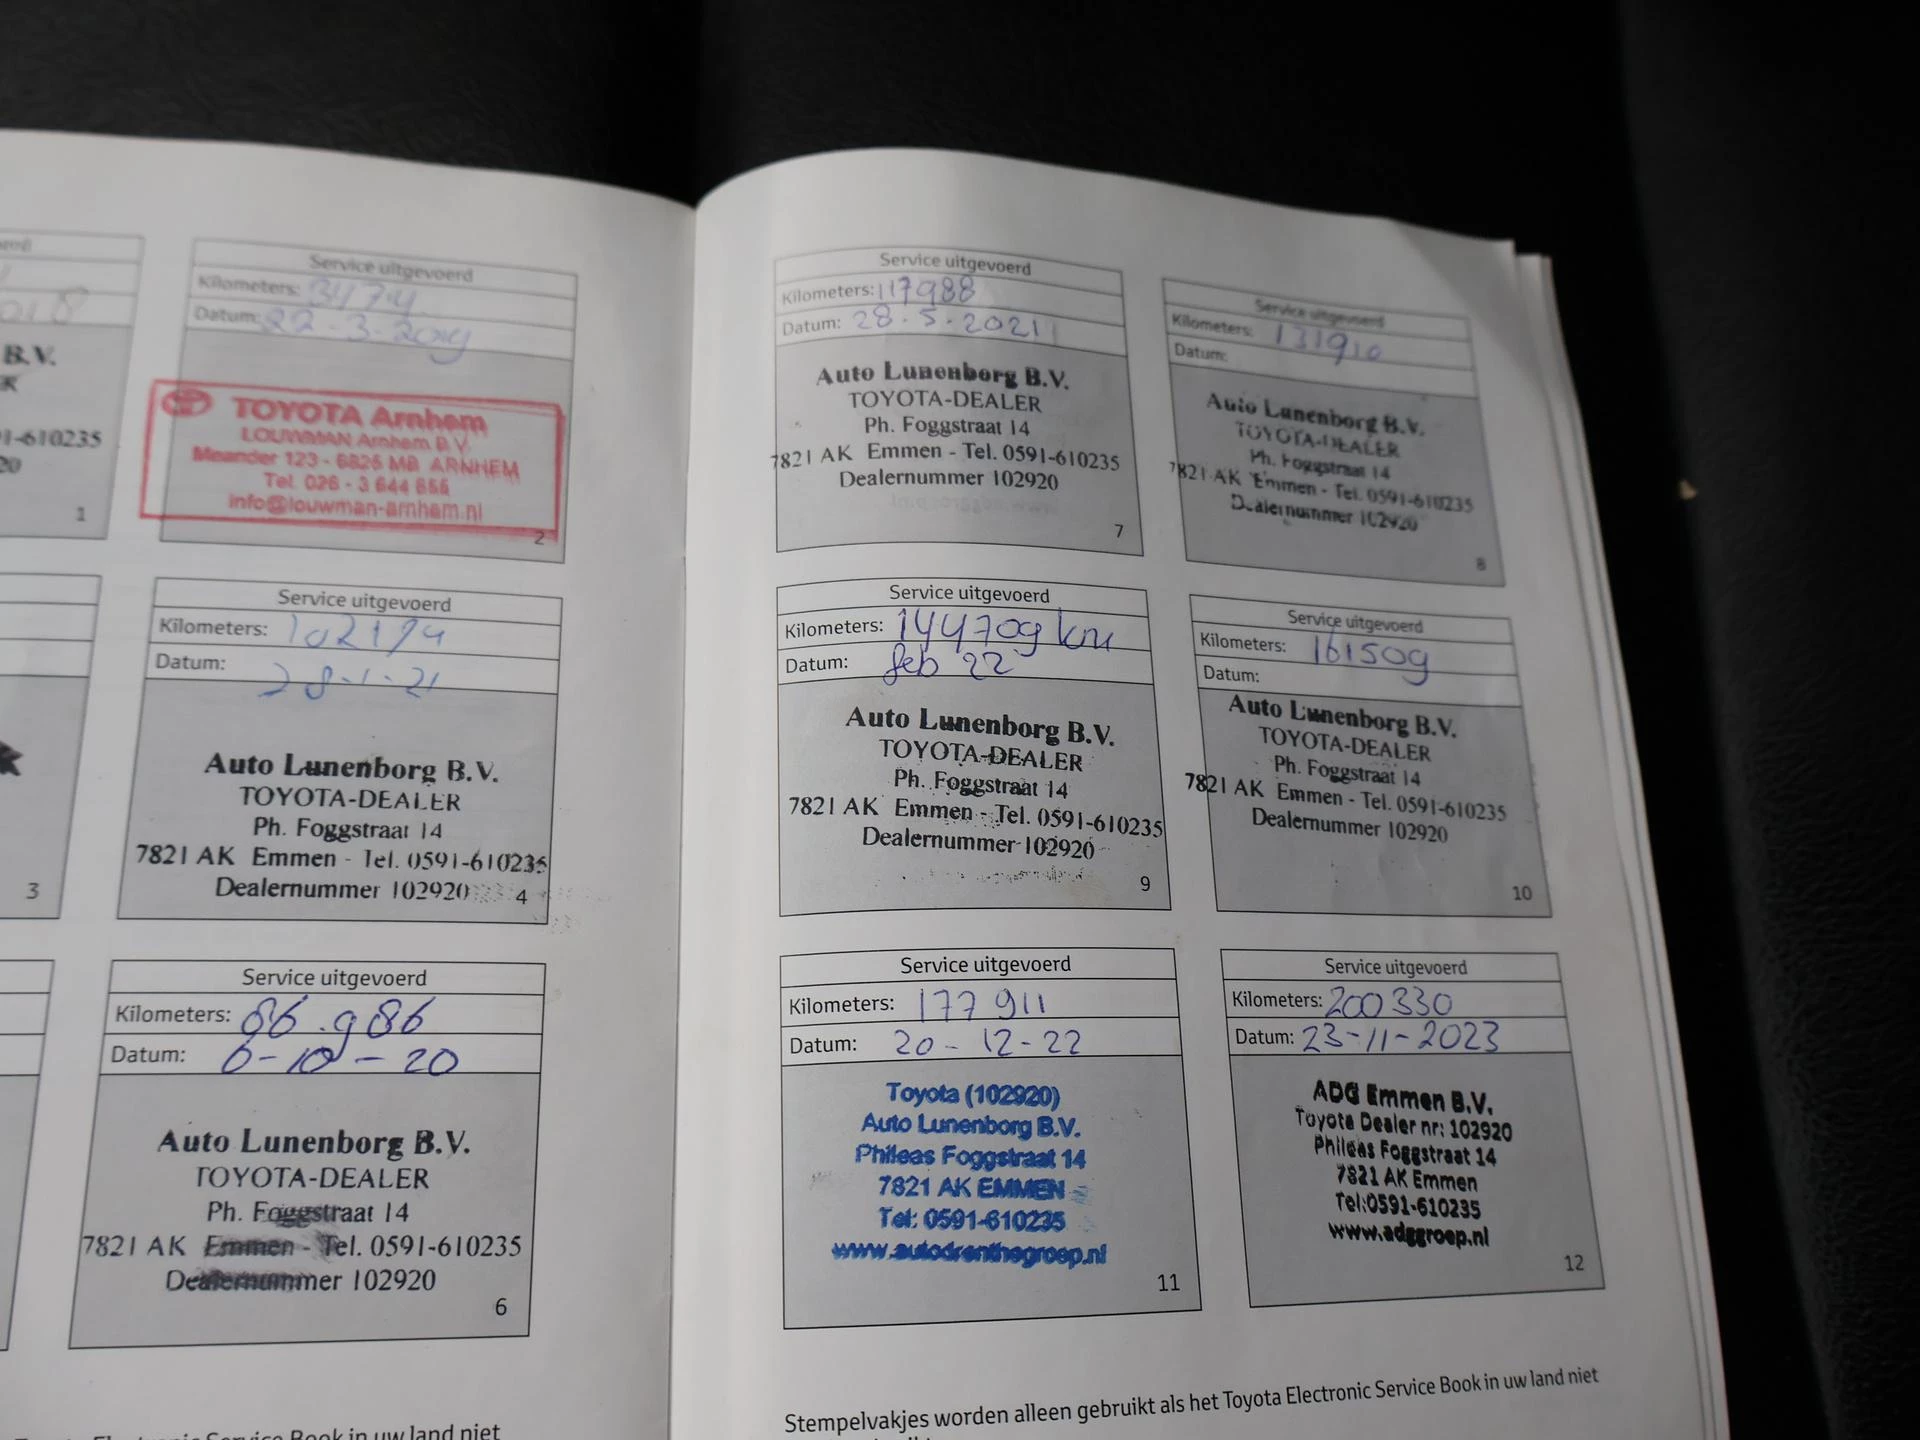 018
B.V.
1-610235
20
1
Service uitgevoerd
Kilometers: 3474
Datum: 22-3-2019
TOYOTA Arnhem
LOUWMAN Arnhem B.V.
Meander 123 - 6825 MB ARNHEM
Tel. 026 - 3 644 655
info@louwman-arnhem.nl
2
3
Service uitgevoerd
Kilometers: 102194
Datum: 28-1-21
Auto Lunenborg B.V.
TOYOTA-DEALER
Ph. Foggstraat 14
7821 AK Emmen - Tel. 0591-610235
Dealernummer 102920
4
Service uitgevoerd
Kilometers: 86.986
Datum: 6-10-20
Auto Lunenborg B.V.
TOYOTA-DEALER
Ph. Foggstraat 14
7821 AK Emmen - Tel. 0591-610235
Dealernummer 102920
6
Service Book in uw land niet
Service uitgevoerd
Kilometers: 117988
Datum: 28.5.2021
Auto Lunenborg B.V.
TOYOTA-DEALER
Ph. Foggstraat 14
7821 AK Emmen - Tel. 0591-610235
Dealernummer 102920
7
Service uitgevoerd
Kilometers: 131910
Datum:
Auto Lunenborg B.V.
TOYOTA-DEALER
Ph. Foggstraat 14
7821 AK Emmen - Tel. 0591-610235
Dealernummer 102920
8
Service uitgevoerd
Kilometers: 144709 km
Datum: feb 22
Auto Lunenborg B.V.
TOYOTA-DEALER
Ph. Foggstraat 14
7821 AK Emmen - Tel. 0591-610235
Dealernummer 102920
9
Service uitgevoerd
Kilometers: 161509
Datum:
Auto Lunenborg B.V.
TOYOTA-DEALER
Ph. Foggstraat 14
7821 AK Emmen - Tel. 0591-610235
Dealernummer 102920
10
Service uitgevoerd
Kilometers: 177911
Datum: 20-12-22
Toyota (102920)
Auto Lunenborg B.V.
Phileas Foggstraat 14
7821 AK EMMEN
Tel: 0591-610235
www.autodrenthegroep.nl
11
Service uitgevoerd
Kilometers: 200330
Datum: 23-11-2023
ADG Emmen B.V.
Toyota Dealer nr: 102920
Phileas Foggstraat 14
7821 AK Emmen
Tel:0591-610235
www.adggroep.nl
12
Stempelvakjes worden alleen gebruikt als het Toyota Electronic Service Book in uw land niet